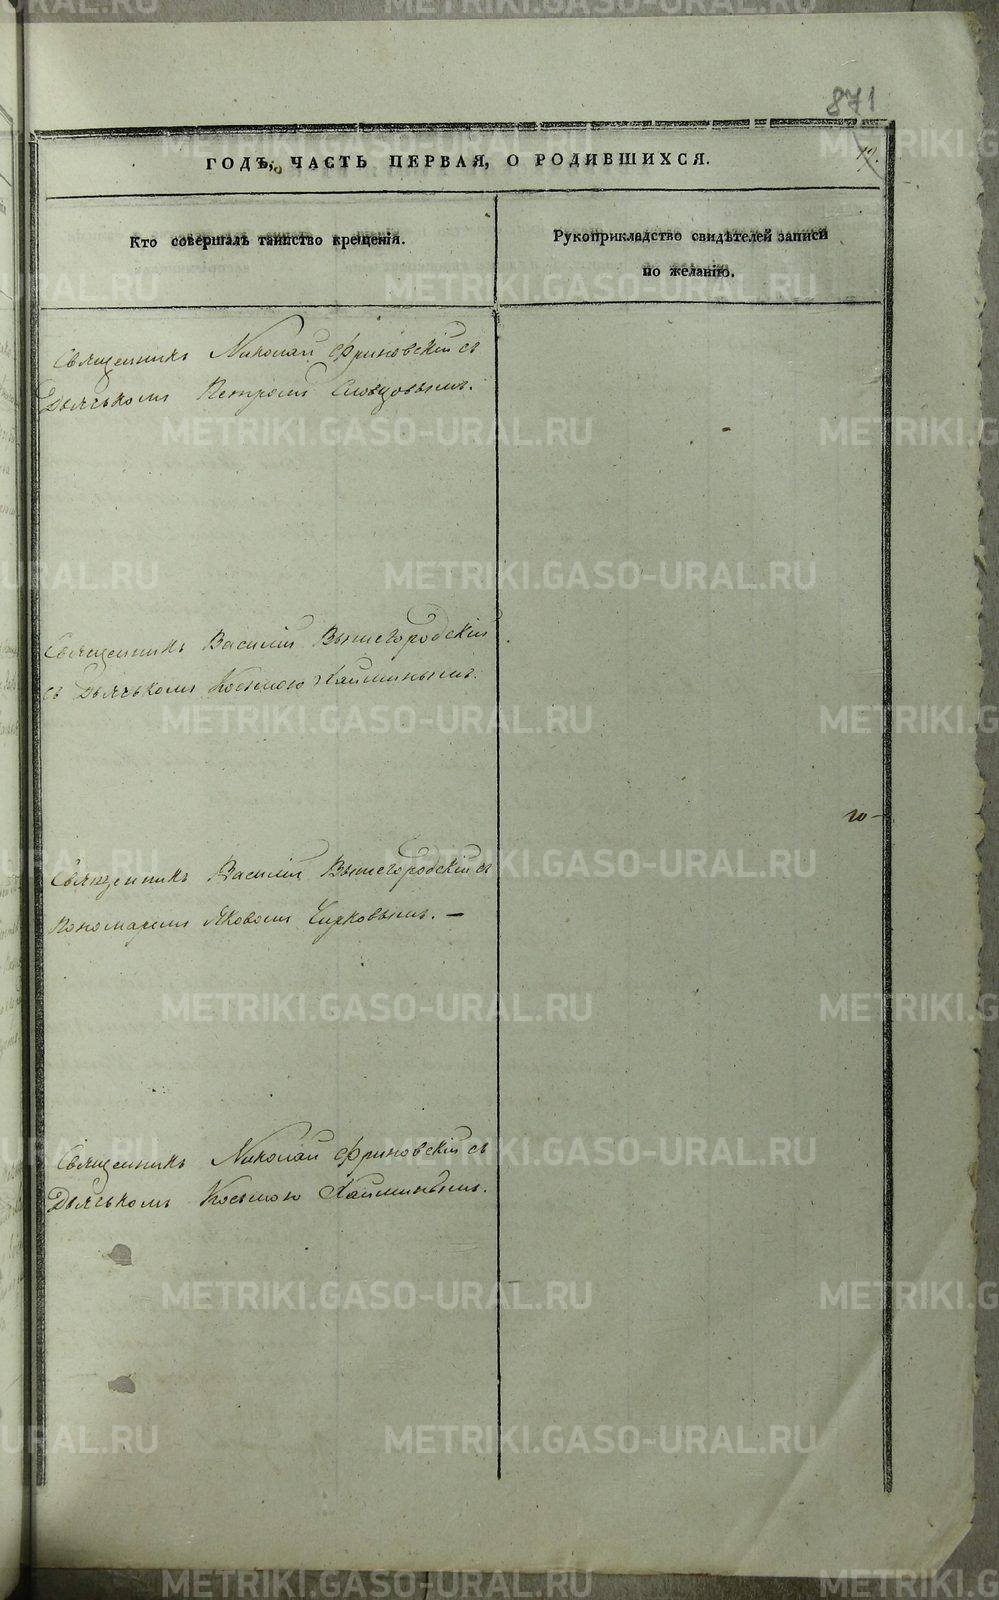 METRIKI.GASO-URAL.RU
871
ГОДЪ, ЧАСТЬ ПЕРВАЯ, О РОДИВШИХСЯ.
Кто совершалъ таинство крещенія.
Рукоприкладство свидѣтелей записи
по желанію.
Священникъ Николай Фриновскій съ
Дьячькомъ Петромъ Словцовымъ.
Священникъ Василій Вышегородскій
съ Дьячькомъ Косьмою Хайминымъ.
10 -
Священникъ Василій Вышегородскій съ
Пономаремъ Яковомъ Чирковымъ. —
Священникъ Николай Фриновскій съ
Дьячькомъ Косьмою Хайминымъ.